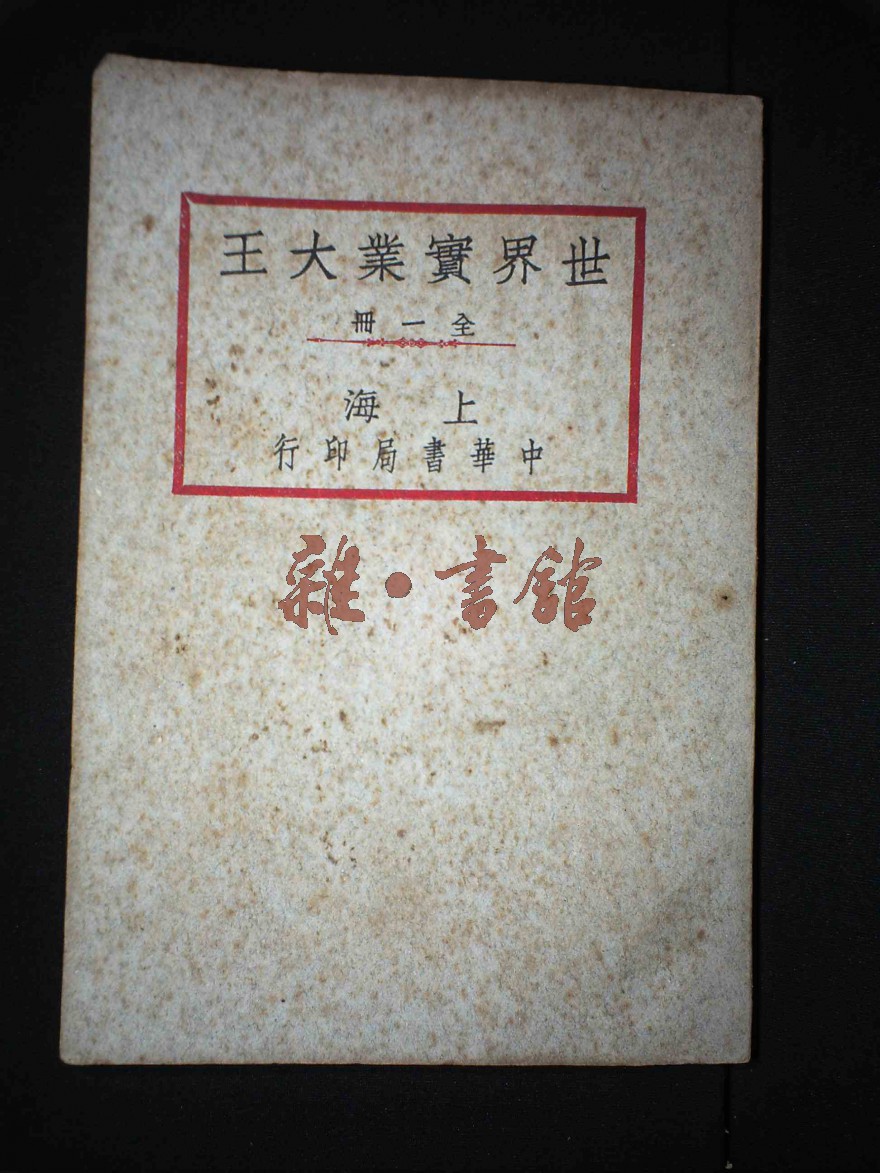 世界實業大王
全一冊
上海
中華書局印行
雜·書館